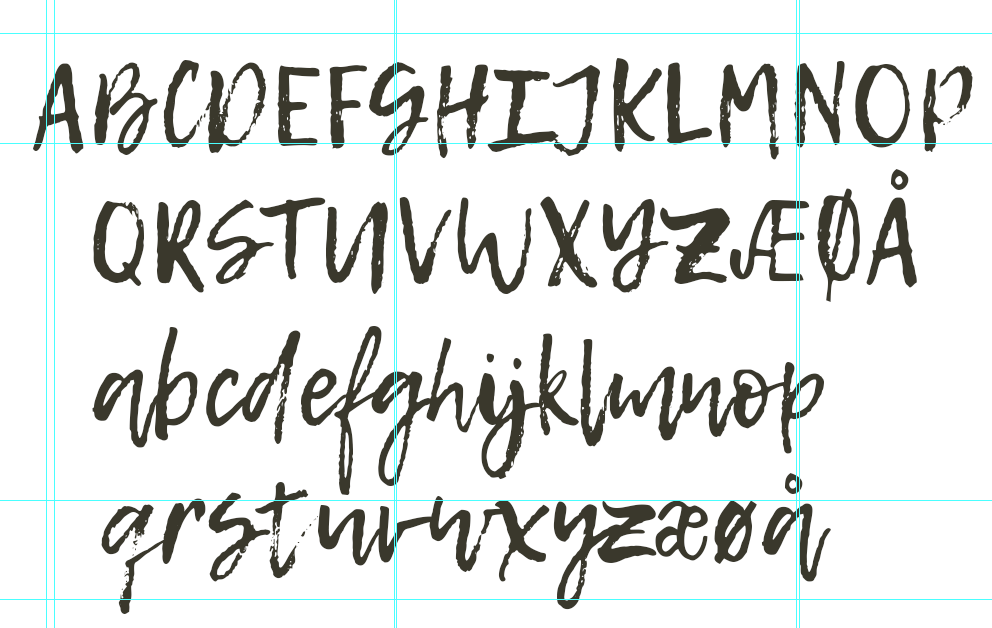 ABCDEFGHIJKLMNOP
QRSTUVWXYZÆØÅ
abcdefghijklmnop
qrstuvwxyzæøå